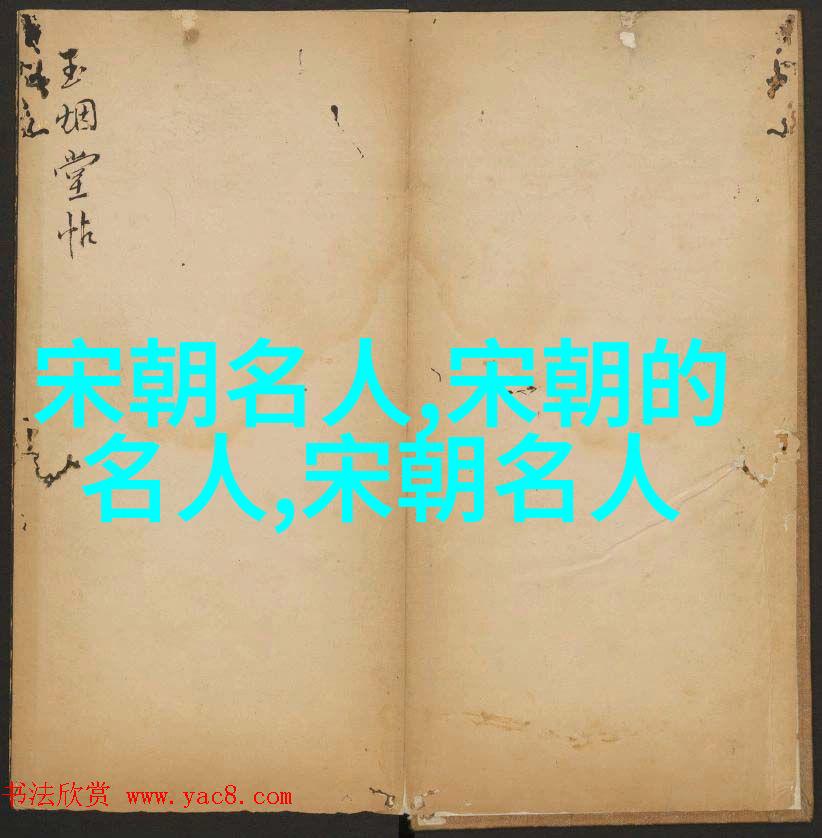 玉烟堂帖
宋朝名人,宋朝的
名人,宋朝名人
书法欣赏 www.yac8.com